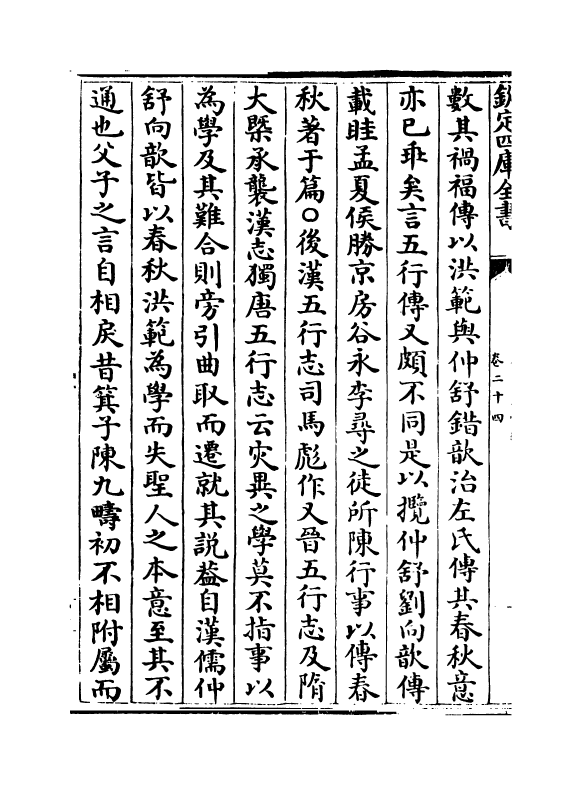 欽定四庫全書
卷二十四
數其禍福傳以洪範與仲舒錯歆治左氏傳其春秋意
亦已乖矣言五行傳又頗不同是以攬仲舒劉向歆傳
載眭孟夏侯勝京房谷永李尋之徒所陳行事以傳春
秋著于篇○後漢五行志司馬彪作又晉五行志及隋
大槩承襲漢志獨唐五行志云灾異之學莫不指事以
為學及其難合則旁引曲取而遷就其説葢自漢儒仲
舒向歆皆以春秋洪範為學而失聖人之本意至其不
通也父子之言自相戾昔箕子陳九疇初不相附屬而